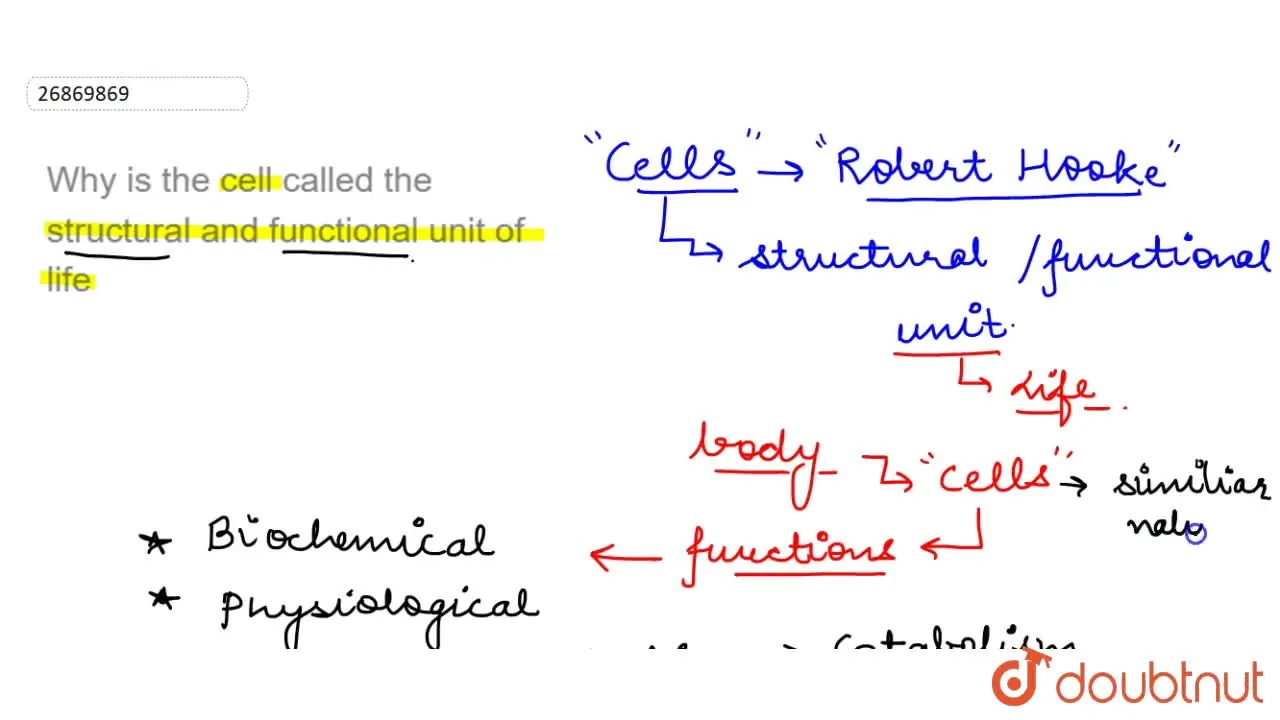 26869869
Why is the cell called the
structural and functional unit of
life
"Cells" → "Robert Hooke"
structural / functional
unit.
Life.
body "cells" → similiar
functions
* Biochemical
* Physiological
→ catabolism
doubtnut